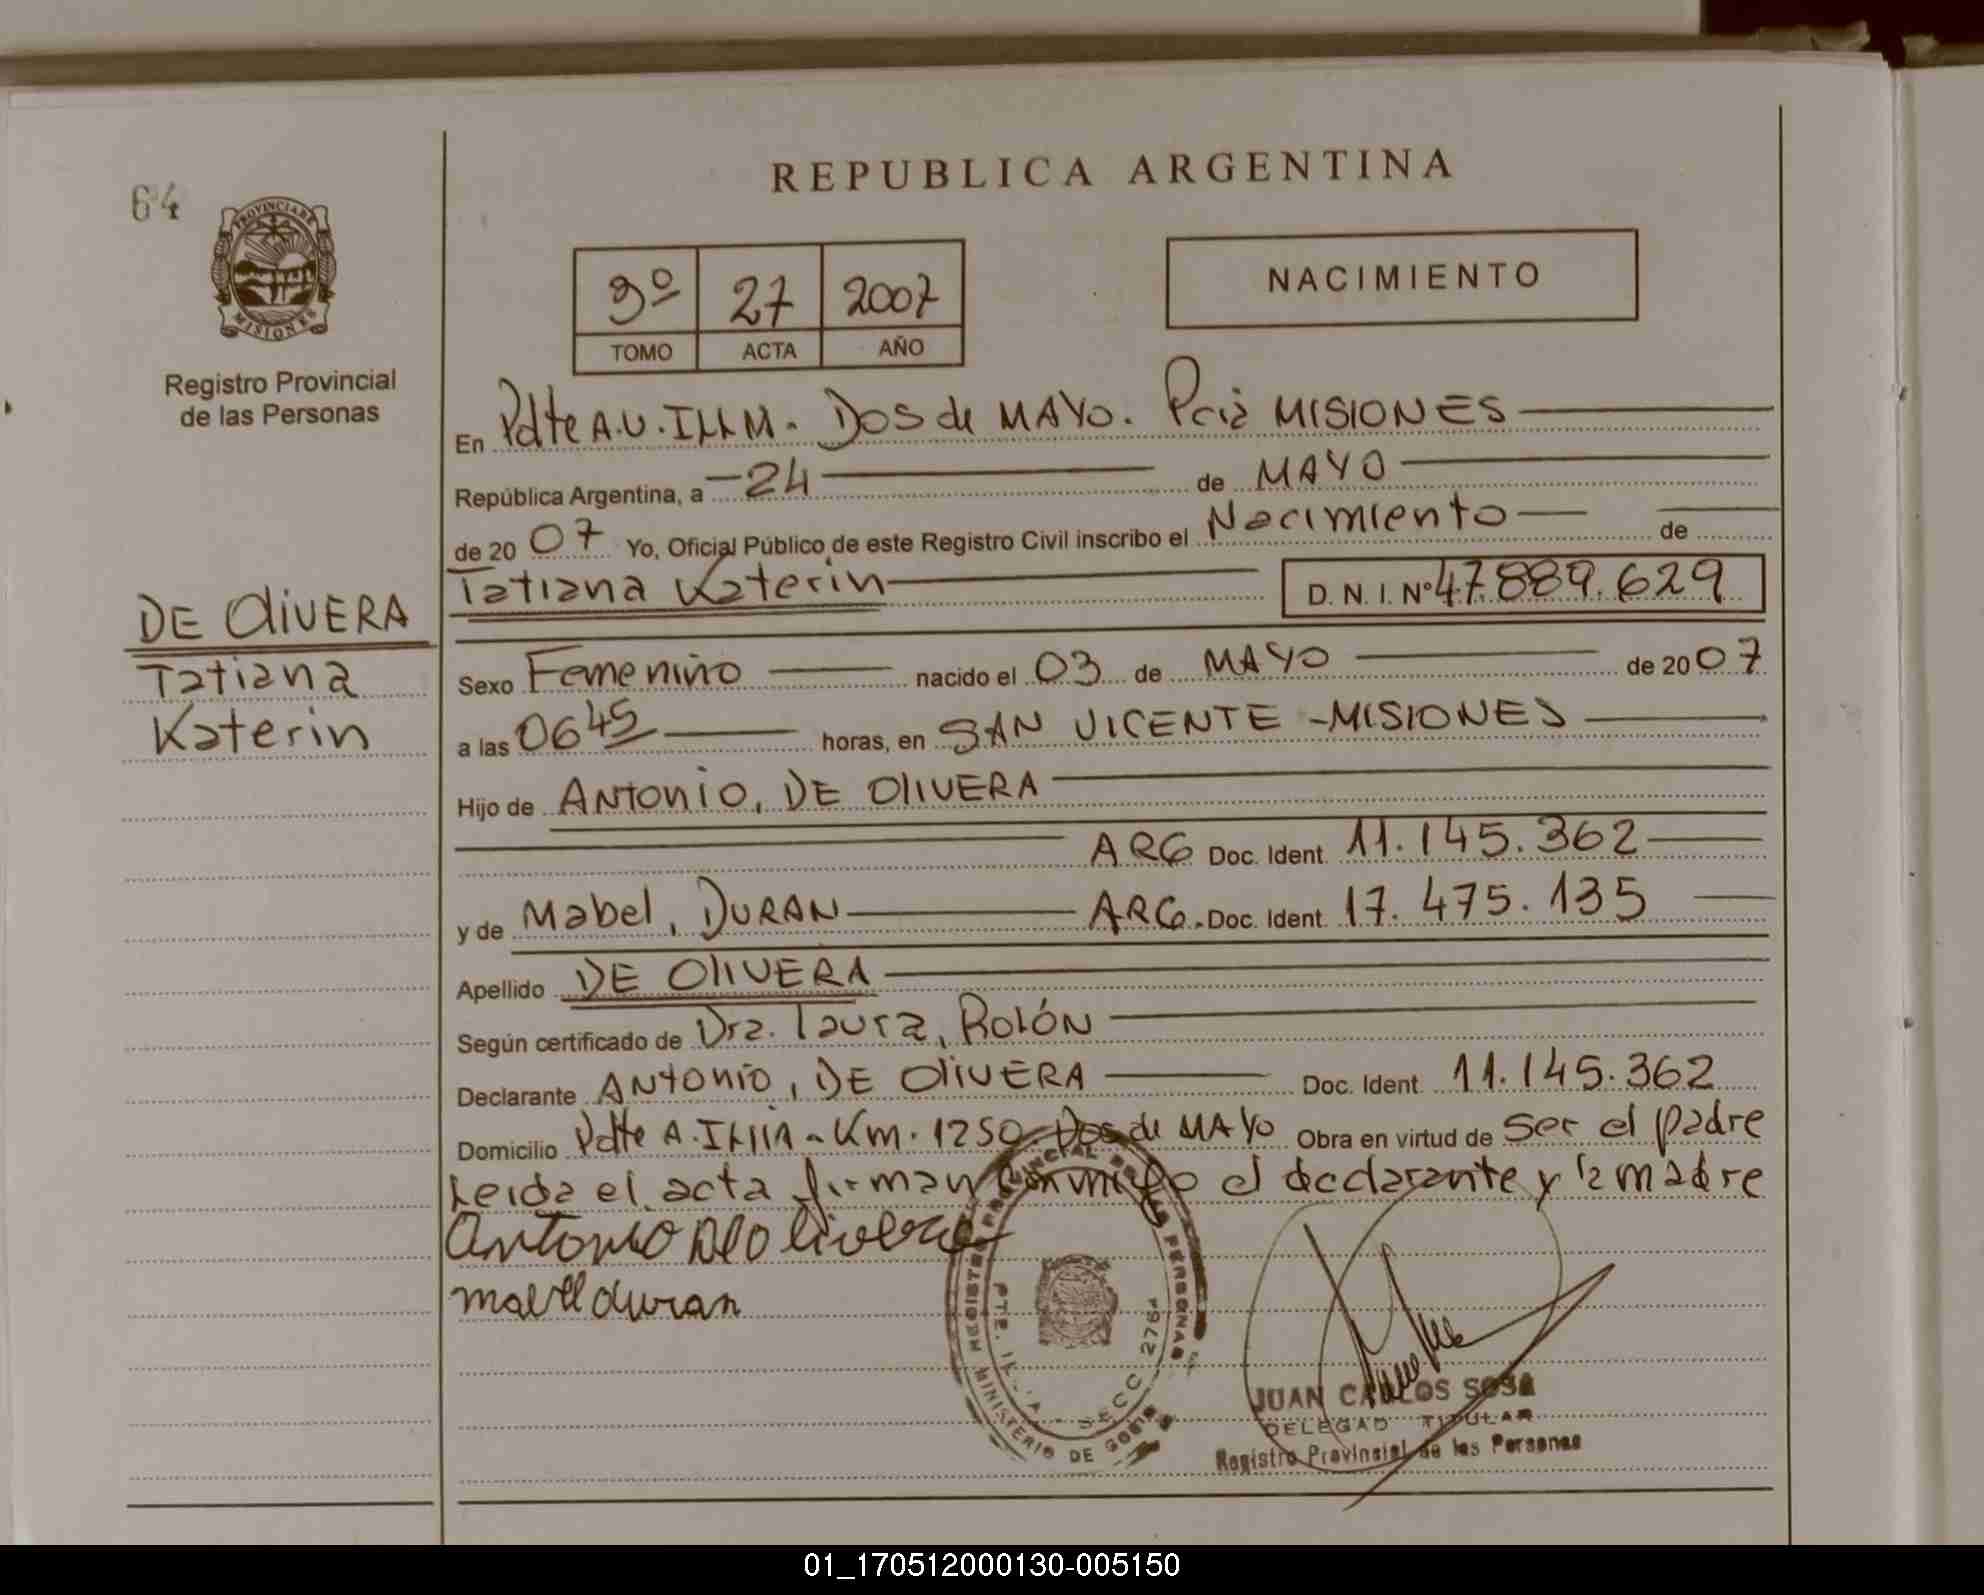 REPUBLICA ARGENTINA
64
PROVINCIA DE
MISIONES
Registro Provincial
de las Personas
3º 27 2007
TOMO ACTA AÑO
NACIMIENTO
En Pdte A.U. ILLIA. Dos de MAYO. Pcia MISIONES
República Argentina, a 24 de MAYO
de 2007 Yo, Oficial Público de este Registro Civil inscribo el Nacimiento de
Tatiana Katerin D. N. I. Nº 47.889.629
DE OliVERA
Tatiana
Katerin
Sexo Femenino nacido el 03 de MAYO de 2007
a las 0645 horas, en SAN VICENTE - MISIONES
Hijo de ANtonio, DE OlIVERA
ARG Doc. Ident. 11.145.362
y de Mabel, DURAN ARG. Doc. Ident. 17.475.135
Apellido DE OlIVERA
Según certificado de Dra. Laura, Rolón
Declarante ANtonio, DE OliVERA Doc. Ident. 11.145.362
Domicilio Pdte A. Illia - Km. 1250 Dos de MAYO Obra en virtud de ser el padre
Leida el acta firman conmigo el declarante y la madre
Antonio
duran
REGISTRO PROVINCIAL DE LAS PERSONAS
MINISTERIO DE
SECC 276
JUAN CARLOS SOSA
DELEGADO TITULAR
Registro Provincial de las Personas
01_170512000130-005150